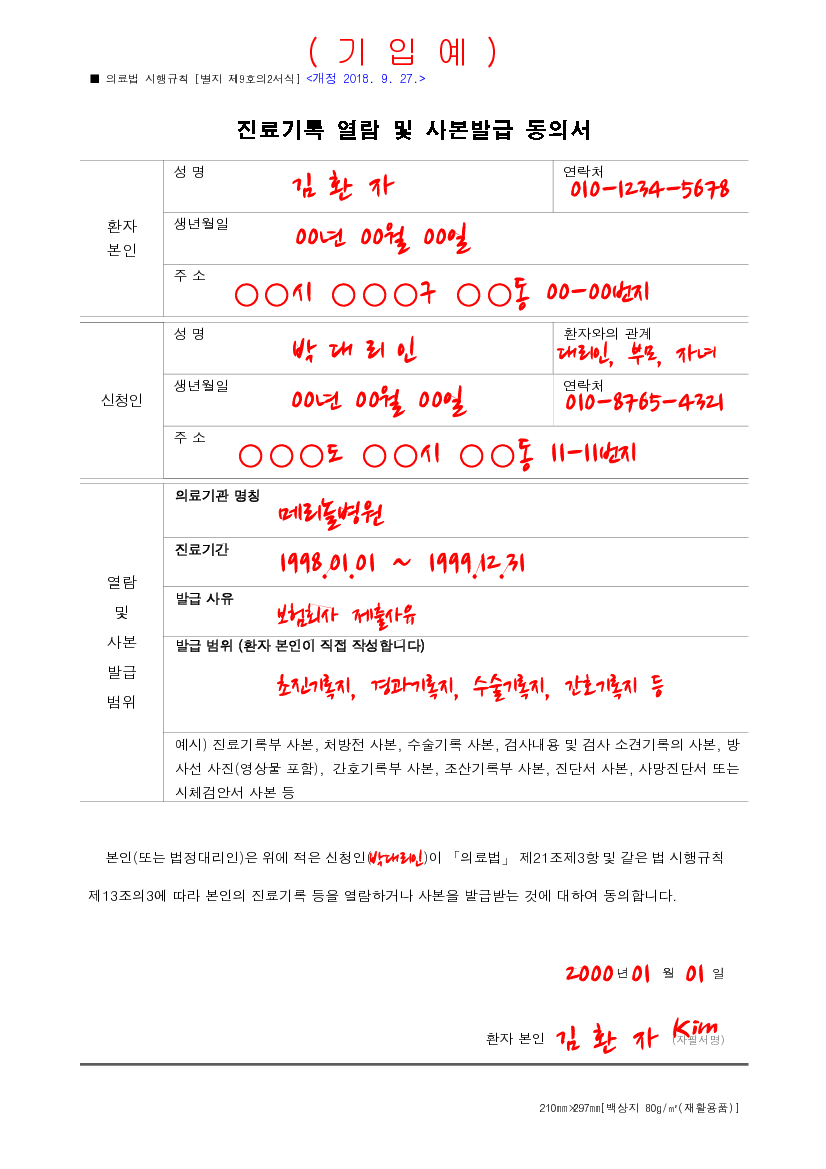 ( 기 입 예 )
■ 의료법 시행규칙 [별지 제9호의2서식] <개정 2018. 9. 27.>
진료기록 열람 및 사본발급 동의서
환자 본인
성 명 김 환 자 연락처 010-1234-5678
생년월일 00년 00월 00일
주 소 ○○시 ○○○구 ○○동 00-00번지
신청인
성 명 박 대 리 인 환자와의 관계 대리인, 부모, 자녀
생년월일 00년 00월 00일 연락처 010-8765-4321
주 소 ○○○도 ○○시 ○○동 11-11번지
열람
및
사본
발급
범위
의료기관 명칭 메리놀병원
진료기간 1998.01.01 ~ 1999.12.31
발급 사유 보험회사 제출사유
발급 범위 (환자 본인이 직접 작성합니다)
초진기록지, 경과기록지, 수술기록지, 간호기록지 등
예시) 진료기록부 사본, 처방전 사본, 수술기록 사본, 검사내용 및 검사 소견기록의 사본, 방
사선 사진(영상물 포함), 간호기록부 사본, 조산기록부 사본, 진단서 사본, 사망진단서 또는
시체검안서 사본 등
본인(또는 법정대리인)은 위에 적은 신청인(박대리인)이 「의료법」 제21조제3항 및 같은 법 시행규칙
제13조의3에 따라 본인의 진료기록 등을 열람하거나 사본을 발급받는 것에 대하여 동의합니다.
2000 년 01 월 01 일
환자 본인 김 환 자 Kim (자필서명)
210㎜×297㎜[백상지 80g/㎡(재활용품)]